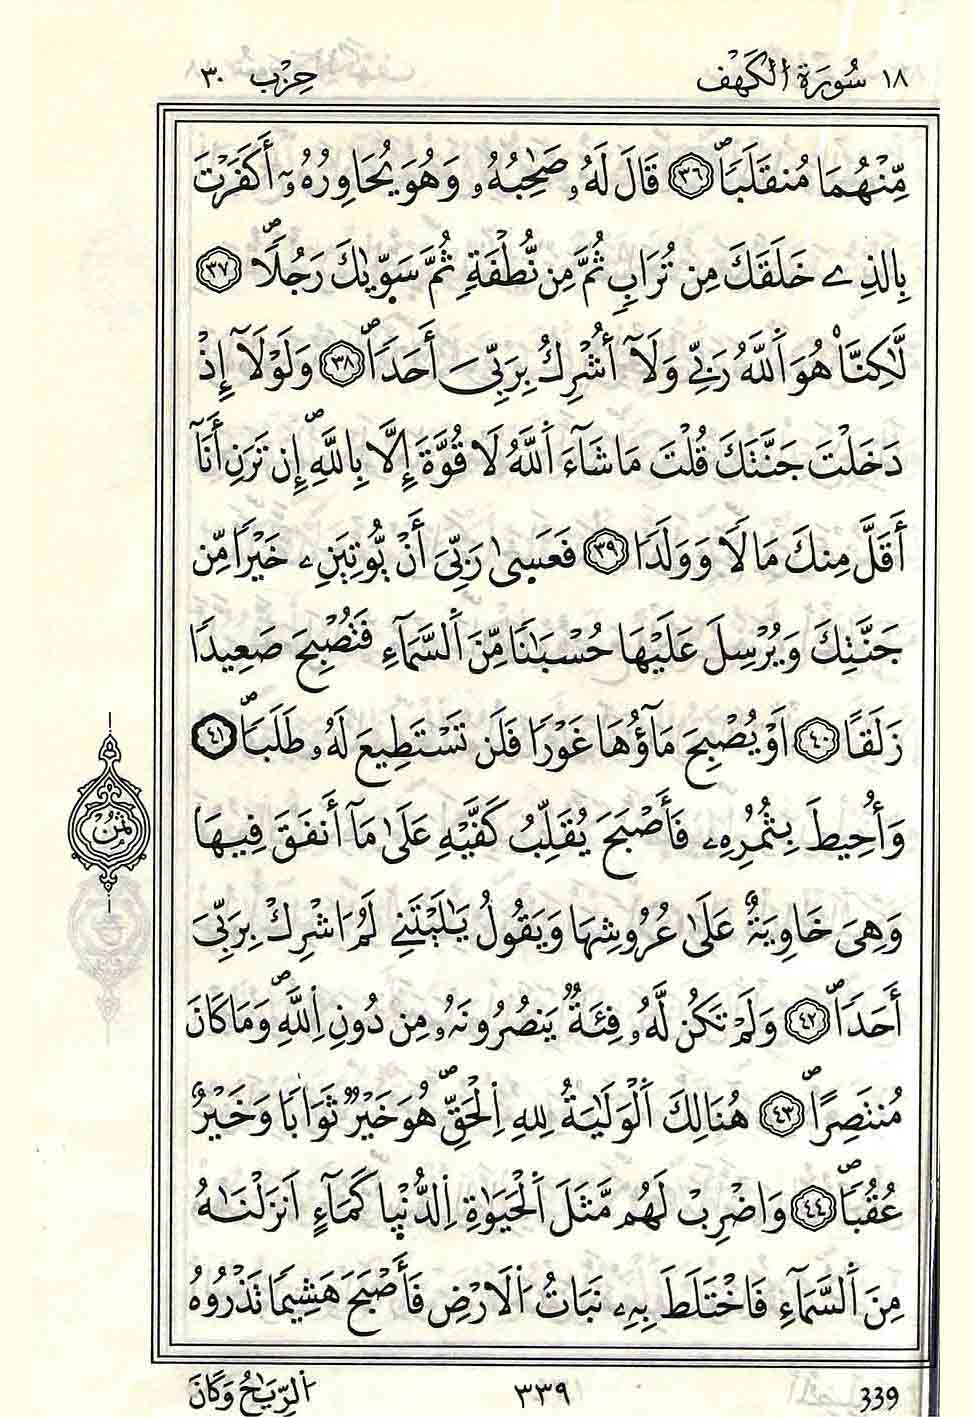 ١٨ سُورَةُ الْكَهْفِ حِزْب ٣٠
مِّنْهُمَا مُنقَلَباٗۖ ٣٦ قَالَ لَهُۥ صَٰحِبُهُۥ وَهُوَ يُحَاوِرُهُۥٓ أَكَفَرْتَ
بِالذِے خَلَقَكَ مِن تُرَابٖ ثُمَّ مِن نُّطْفَةٖ ثُمَّ سَوّ۪يٰكَ رَجُلاٗۖ ٣٧
لَّٰكِنَّا۠ هُوَ اَ۬للَّهُ رَبِّے وَلَآ أُشْرِكُ بِرَبِّيَ أَحَداٗۖ ٣٨ وَلَوْلَآ إِذْ
دَخَلْتَ جَنَّتَكَ قُلْتَ مَا شَآءَ اَ۬للَّهُ لَا قُوَّةَ إِلَّا بِاللَّهِۖ إِن تَرَنِۦٓ أَنَآ
أَقَلَّ مِنكَ مَالاٗ وَوَلَداٗ ٣٩ فَعَس۪يٰ رَبِّيَ أَنْ يُّوتِيَنِۦ خَيْراٗ مِّن
جَنَّتِكَ وَيُرْسِلَ عَلَيْهَا حُسْبَٰناٗ مِّنَ اَ۬لسَّمَآءِ فَتُصْبِحَ صَعِيداٗ
زَلَقاٗ ٤٠ اَوْ يُصْبِحَ مَآؤُهَا غَوْراٗ فَلَن تَسْتَطِيعَ لَهُۥ طَلَباٗۖ ٤١
وَأُحِيطَ بِثُمُرِهِۦ فَأَصْبَحَ يُقَلِّبُ كَفَّيْهِ عَلَىٰ مَآ أَنفَقَ فِيهَا
وَهِيَ خَاوِيَةٌ عَلَىٰ عُرُوشِهَا وَيَقُولُ يَٰلَيْتَنِے لَمُ اُشْرِكْ بِرَبِّيَ
أَحَداٗۖ ٤٢ وَلَمْ تَكُن لَّهُۥ فِئَةٞ يَنصُرُونَهُۥ مِن دُونِ اِ۬للَّهِۖ وَمَا كَانَ
مُنتَصِراًۖ ٤٣ هُنَالِكَ اَ۬لْوَلَٰيَةُ لِلهِ اِ۬لْحَقِّۖ هُوَ خَيْرٞ ثَوَاباٗ وَخَيْرٌ
عُقُباٗۖ ٤٤ وَاضْرِبْ لَهُم مَّثَلَ اَ۬لْحَيَوٰةِ اِ۬لدُّنْي۪ا كَمَآءٍ اَنزَلْنَٰهُ
مِنَ اَ۬لسَّمَآءِ فَاخْتَلَطَ بِهِۦ نَبَاتُ اُ۬لَارْضِ فَأَصْبَحَ هَشِيماٗ تَذْرُوهُ
ثُمُن
اُ۬لرِّيَٰحُ وَكَانَ ٣٣٩ 339